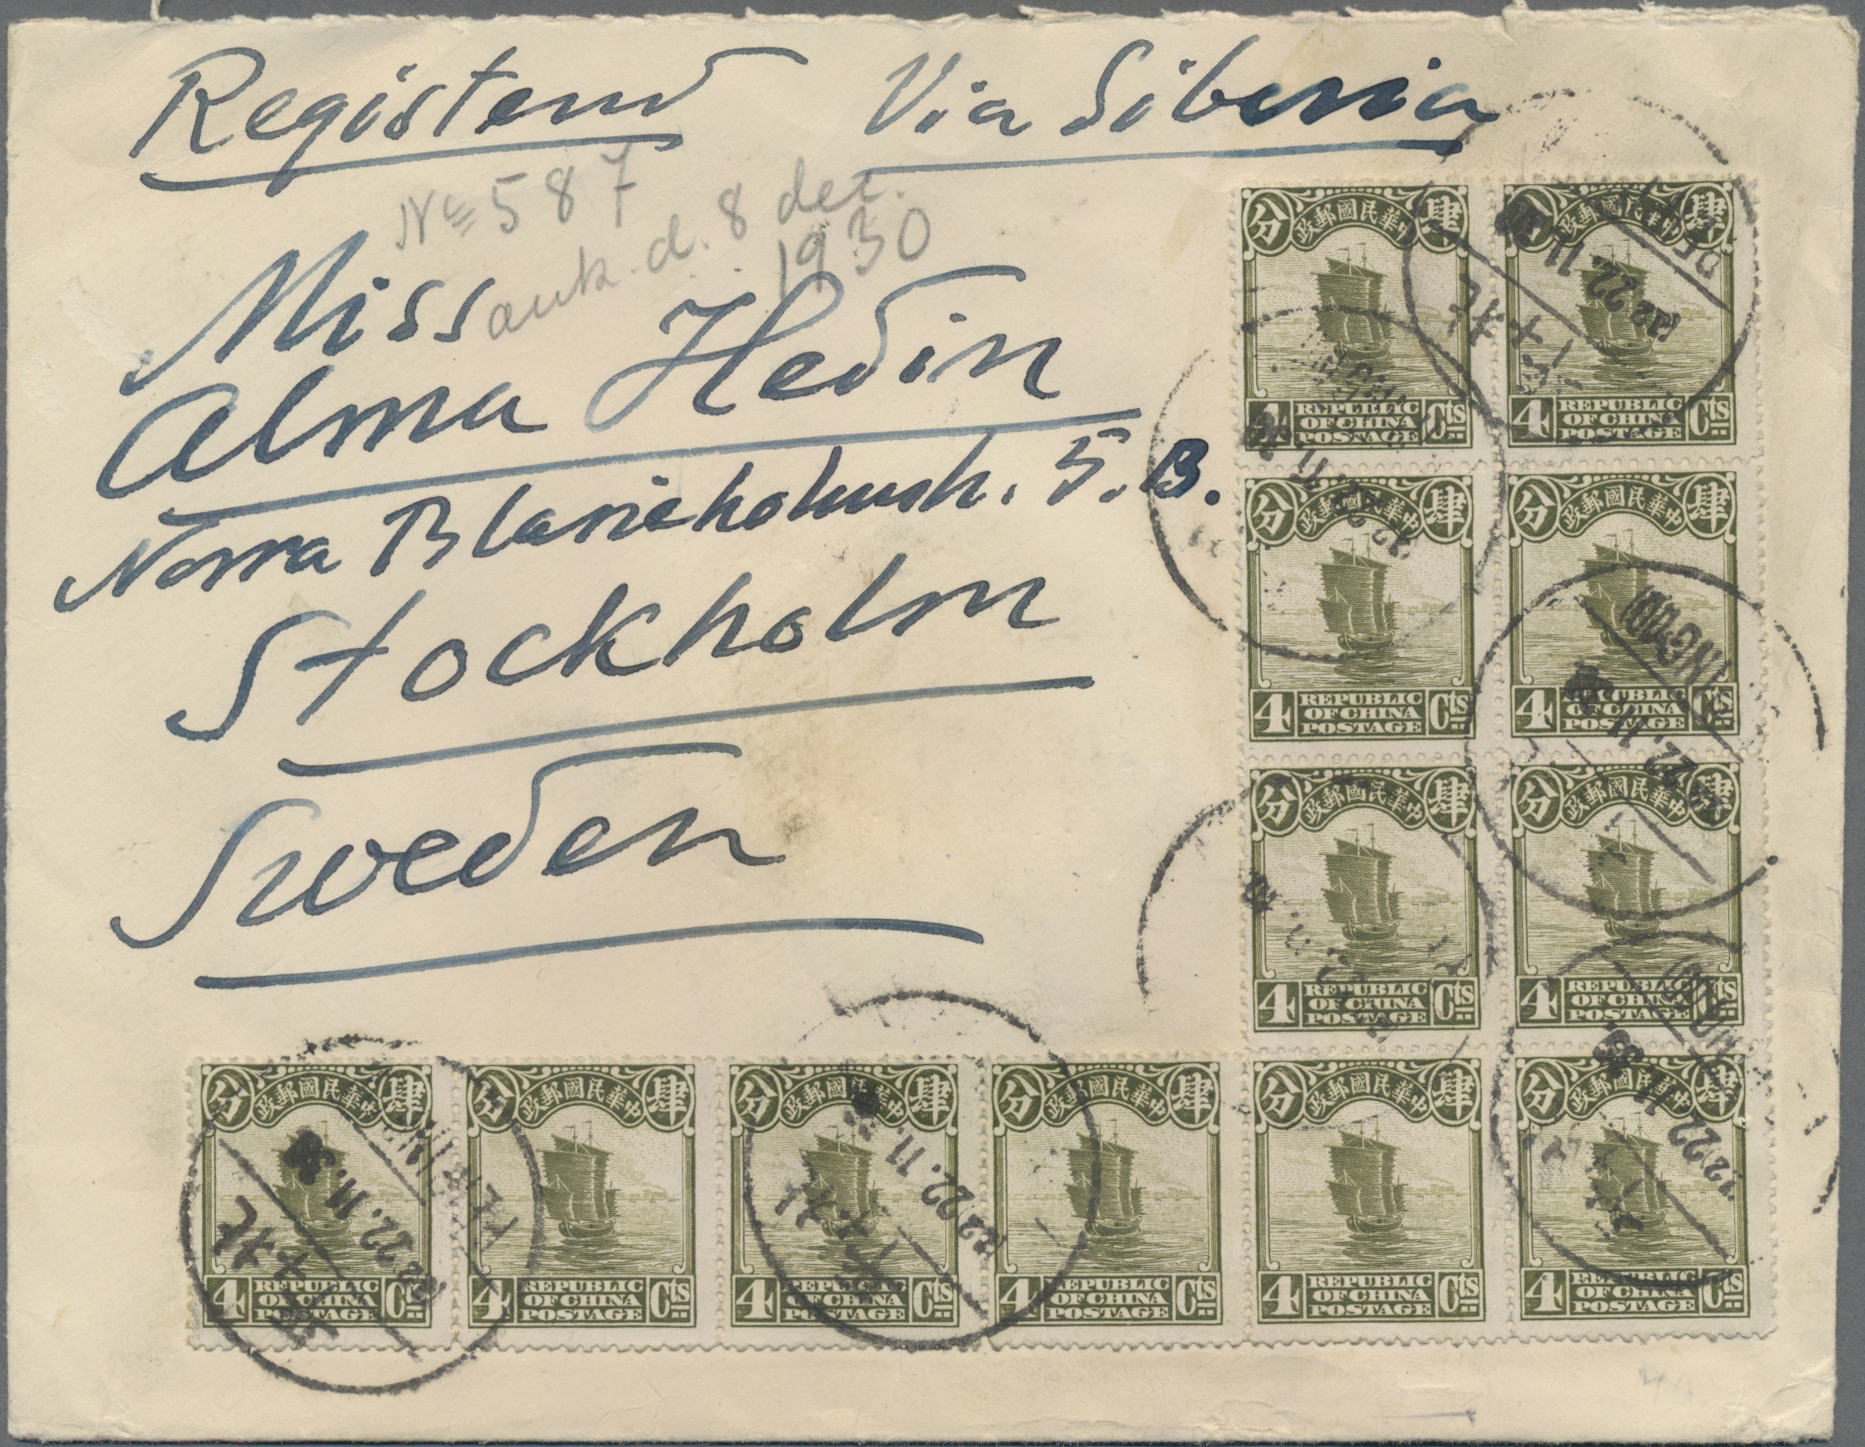 Registered Via Siberia
No 587
ank. d. 8 dec.
1930
Miss
Alma Hedin
Norra Blasieholmsh. 5.B.
Stockholm
Sweden
分 政郵國民華中 肆
4 REPUBLIC OF CHINA POSTAGE Cts
分 政郵國民華中 肆
4 REPUBLIC OF CHINA POSTAGE Cts
分 政郵國民華中 肆
4 REPUBLIC OF CHINA POSTAGE Cts
分 政郵國民華中 肆
4 REPUBLIC OF CHINA POSTAGE Cts
分 政郵國民華中 肆
4 REPUBLIC OF CHINA POSTAGE Cts
分 政郵國民華中 肆
4 REPUBLIC OF CHINA POSTAGE Cts
分 政郵國民華中 肆
4 REPUBLIC OF CHINA POSTAGE Cts
分 政郵國民華中 肆
4 REPUBLIC OF CHINA POSTAGE Cts
分 政郵國民華中 肆
4 REPUBLIC OF CHINA POSTAGE Cts
分 政郵國民華中 肆
4 REPUBLIC OF CHINA POSTAGE Cts
分 政郵國民華中 肆
4 REPUBLIC OF CHINA POSTAGE Cts
分 政郵國民華中 肆
4 REPUBLIC OF CHINA POSTAGE Cts
22.11.30
北平